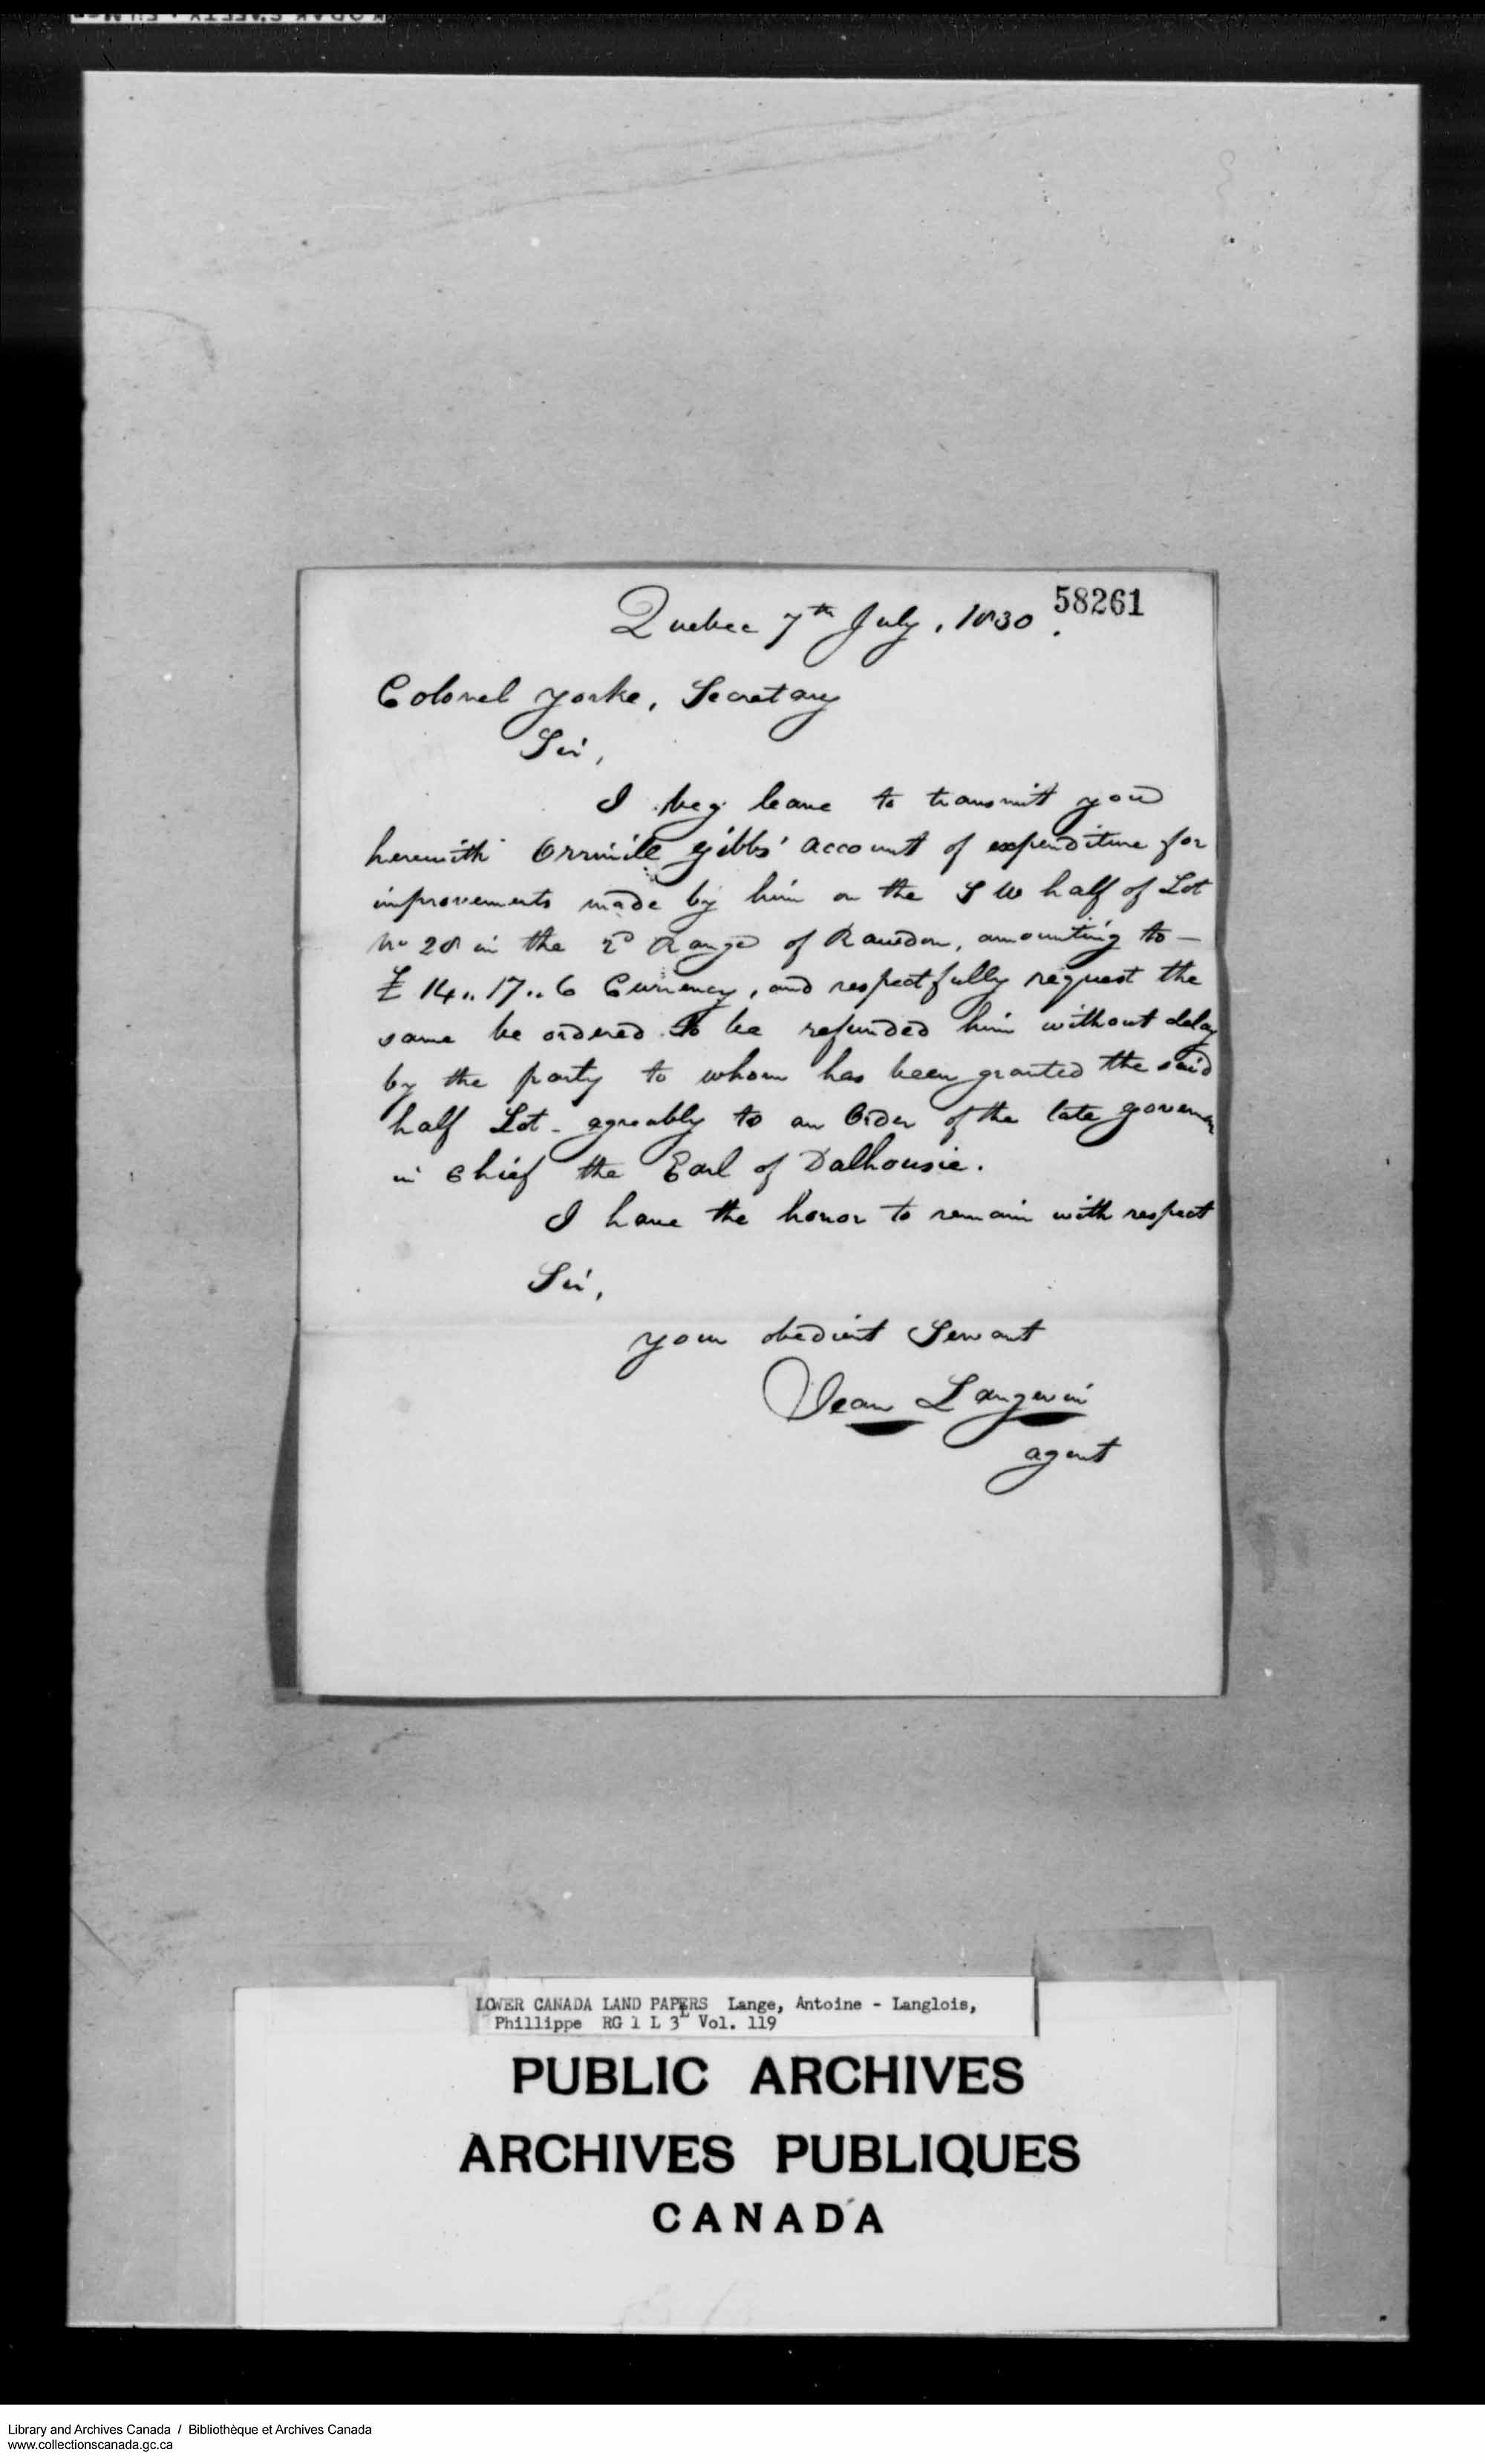 58261
Quebec 7th July, 1830.
Colonel Yorke, Secretary
Sir,
I beg leave to transmit you
herewith Orrville Gibbs' account of expenditure for
improvements made by him on the S W half of Lot
No 28 in the 2d Range of Rawdon, amounting to —
£ 14.. 17.. 6 Currency, and respectfully request the
same be ordered to be refunded him without delay
by the party to whom has been granted the said
half Lot - agreably to an Order of the late Governor
in Chief the Earl of Dalhousie.
I have the honor to remain with respect
Sir,
your obedient Servant
Jean Langevin
agent
LOWER CANADA LAND PAPERS Lange, Antoine - Langlois,
Phillippe RG 1 L 3L Vol. 119
PUBLIC ARCHIVES
ARCHIVES PUBLIQUES
CANADA
Library and Archives Canada / Bibliothèque et Archives Canada
www.collectionscanada.gc.ca